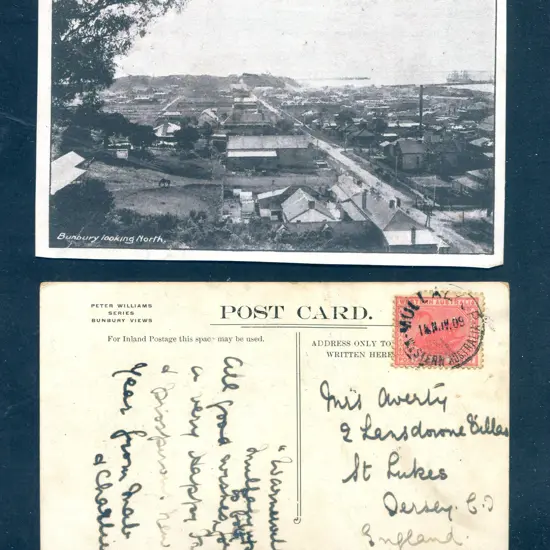 Bunbury looking North.
PETER WILLIAMS
SERIES
BUNBURY VIEWS
POST CARD.
For Inland Postage this space may be used.
ADDRESS ONLY TO
WRITTEN HERE
WESTERN AUSTRALIA
Mrs Averty
2 Lansdowne Villas
St Lukes
Jersey. C.I
England
All good wishes for
a very Happy
& Prosperous New
Year from
& Charlie